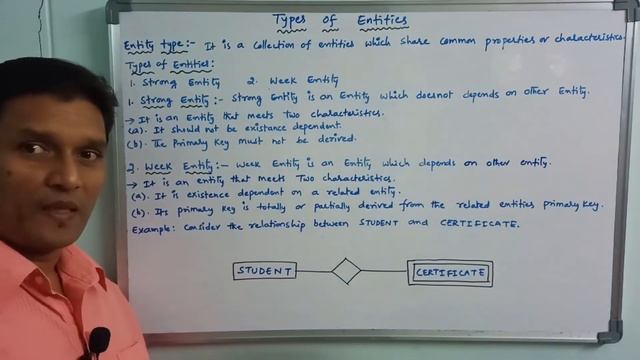 Types of Entities
Entity type:- It is a collection of entities which share common properties or characteristics.
Types of Entities:
1. Strong Entity 2. Week Entity
1. Strong Entity:- Strong Entity is an Entity which doesnot depends on other Entity.
→ It is an Entity that meets two characteristics.
(a). It should not be existance dependent.
(b). The Primary Key must not be derived.
2. Week Entity:- Week Entity is an Entity, which depends on other entity.
→ It is an entity that meets Two characteristics.
(a). It is existence dependent on a related entity.
(b). Its primary key is totally or partially derived from the related entities primary key.
Example: Consider the relationship between STUDENT and CERTIFICATE.
STUDENT CERTIFICATE